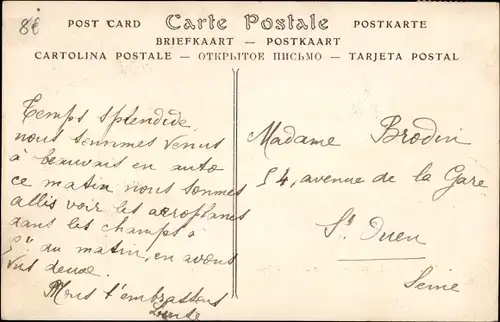 8€
POST CARD Carte Postale POSTKARTE
BRIEFKAART — POSTKAART
CARTOLINA POSTALE — ОТКРЫТОЕ ПИСЬМО — TARJETA POSTAL
Temps splendide
nous sommes venus
à beauvais en auto
ce matin nous sommes
allis voir les aeroplanes
dans les champs à
du matin, en avons
vus deux.
Nous t'embrassons
Madame Brodin
54, avenue de la Gare
St Ouen
Seine